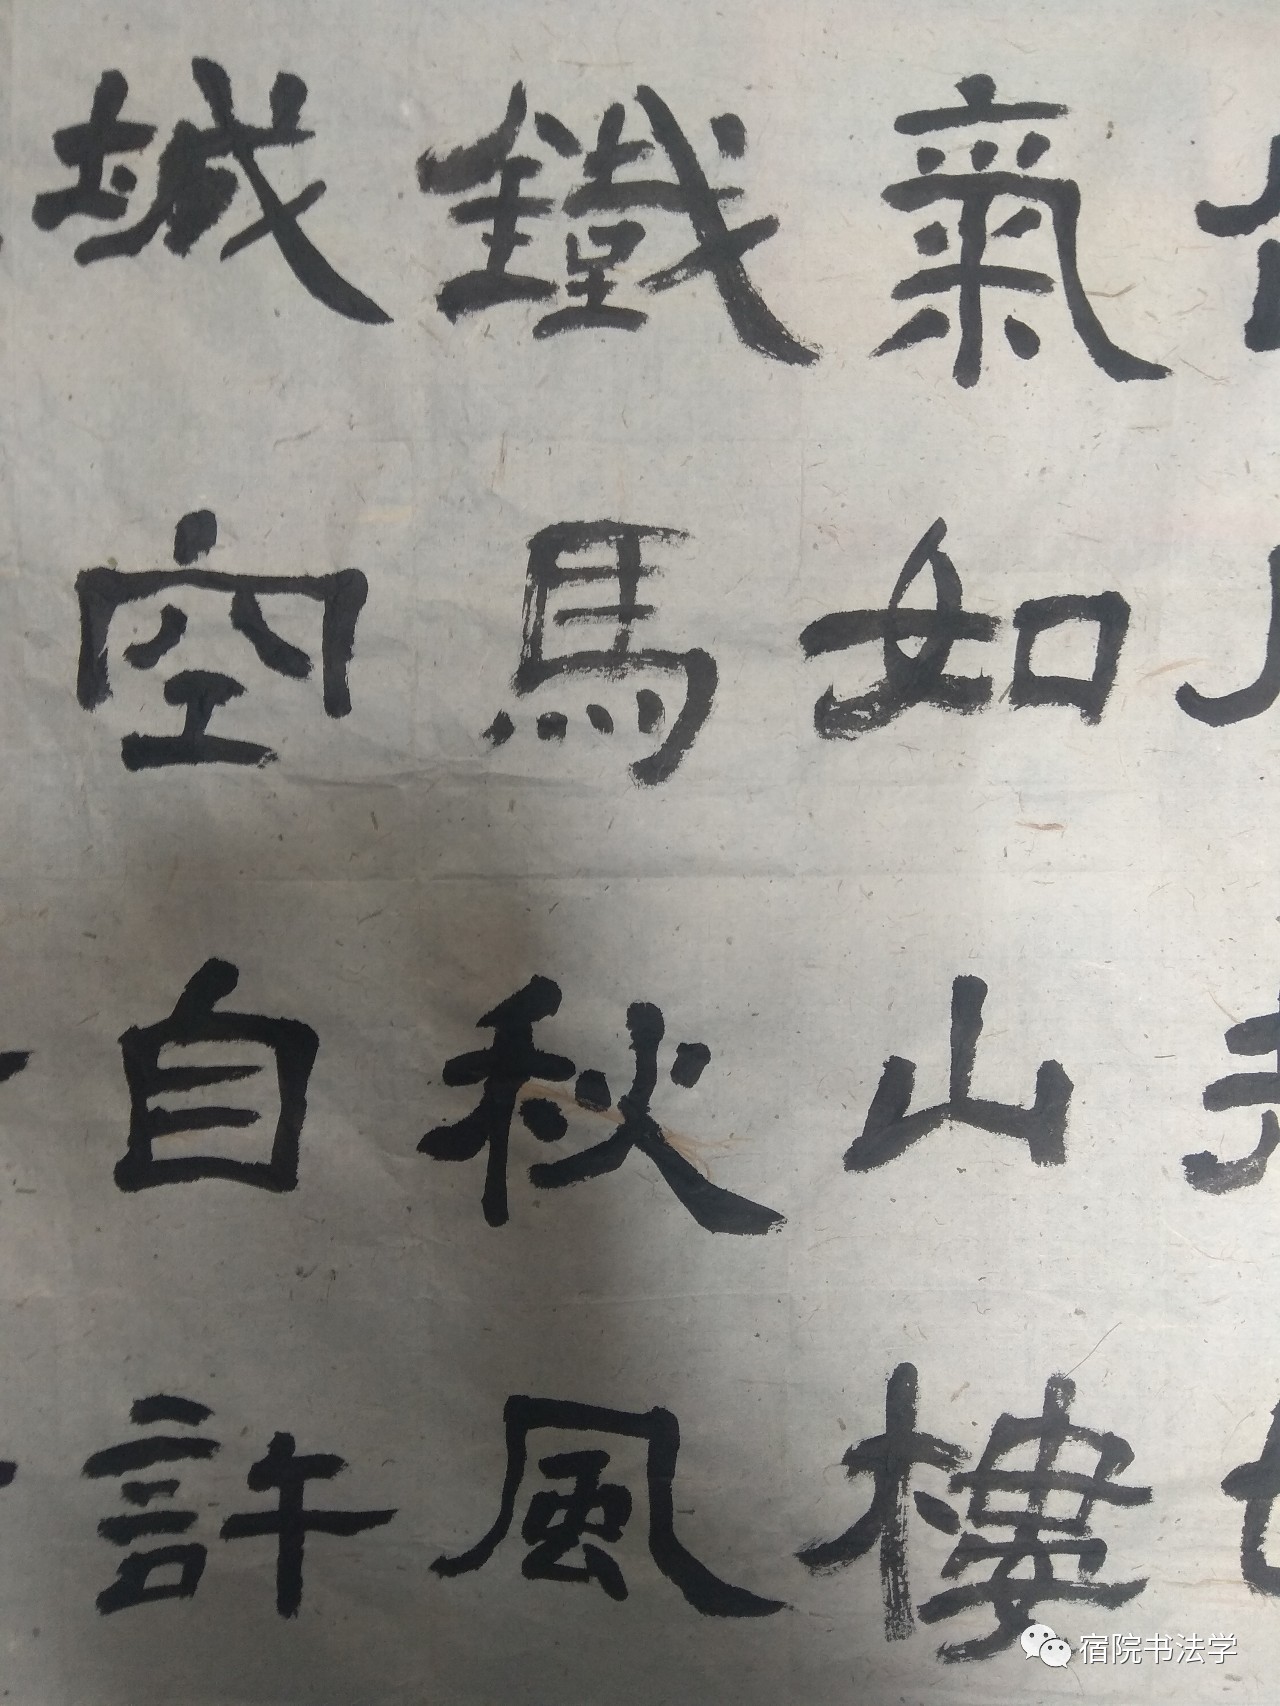 氣如山樓
鐵馬秋風
城空自許
宿院书法学